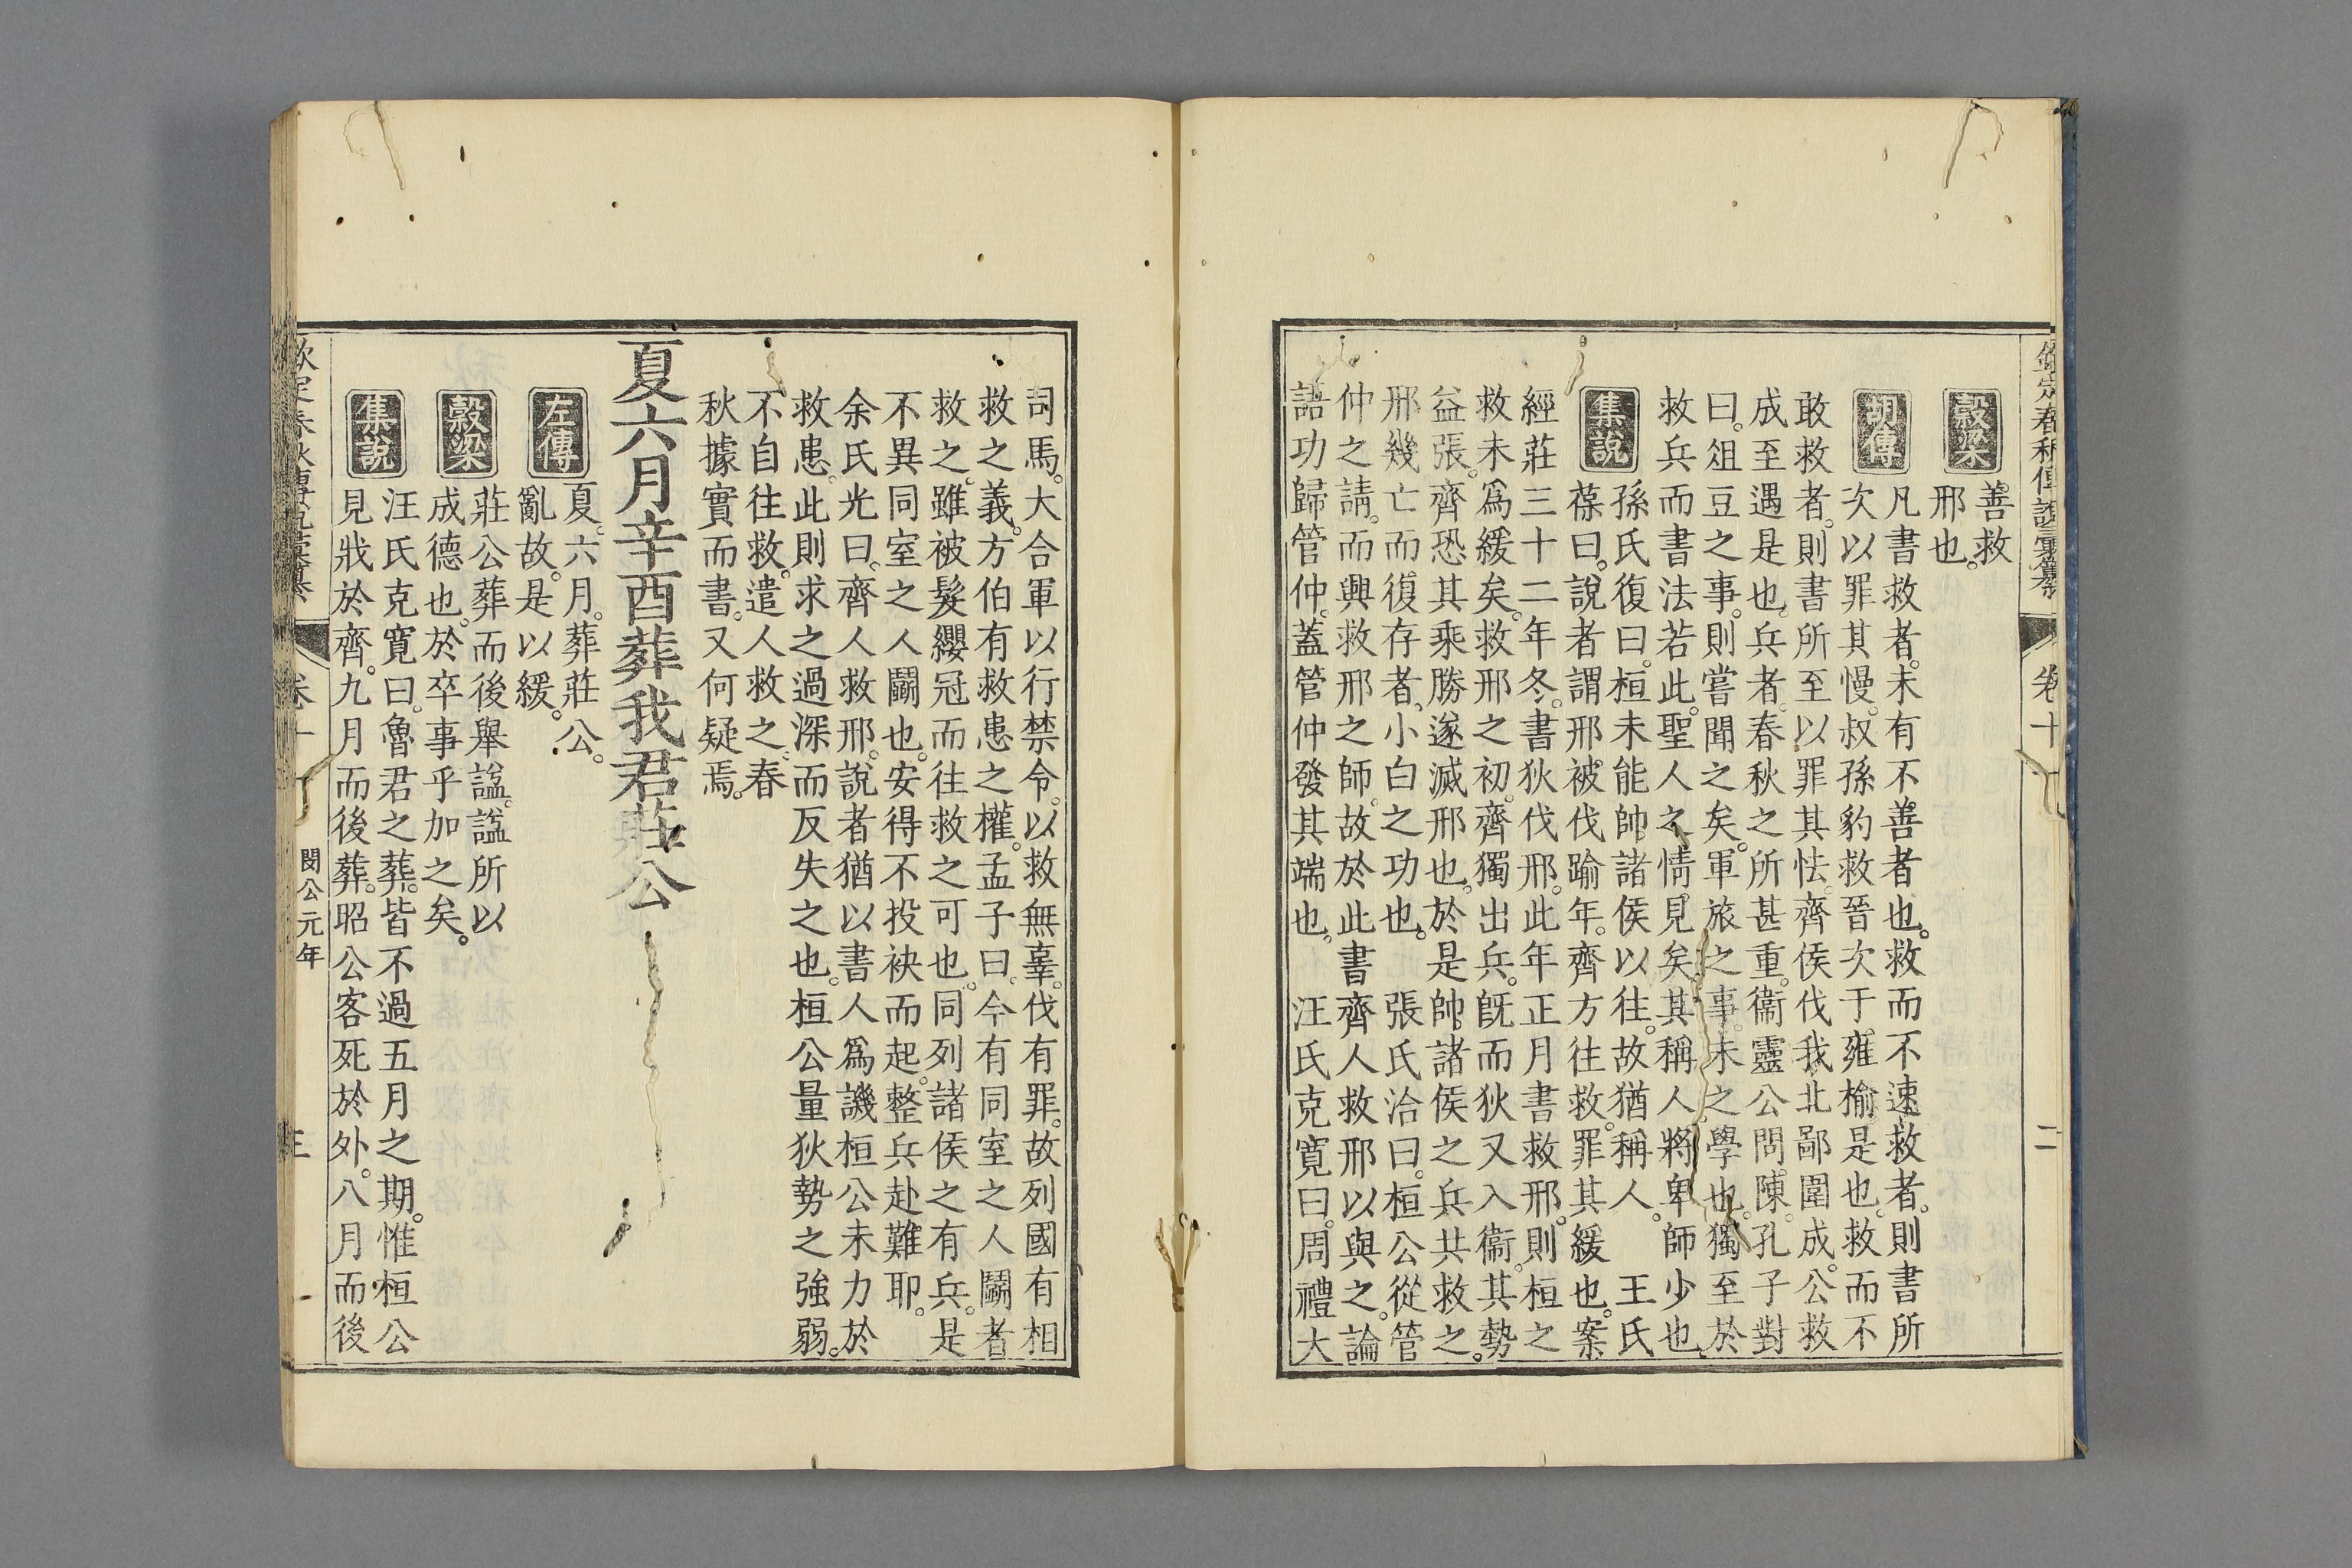 欽定春秋傳說彙纂 卷十 二
穀梁 善救
邢也。
胡傳 凡書救者。未有不善者也。救而不速救者。則書所
次以罪其慢。叔孫豹救晉次于雍榆是也。救而不
敢救者。則書所至以罪其怯。齊侯伐我北鄙圍成。公救
成至遇是也。兵者。春秋之所甚重。衞靈公問陳。孔子對
曰。俎豆之事。則嘗聞之矣。軍旅之事。未之學也。獨至於
救兵而書法若此。聖人之情見矣。其稱人。將卑師少也。
集說 孫氏復曰。桓未能帥諸侯以往。故猶稱人。 王氏
葆曰。說者謂邢被伐踰年。齊方往救。罪其緩也。案
經莊三十二年冬。書狄伐邢。此年正月書救邢。則桓之
救未爲緩矣。救邢之初。齊獨出兵。旣而狄又入衞。其勢
益張。齊恐其乘勝遂滅邢也。於是帥諸侯之兵共救之。
邢幾亡而復存者。小白之功也。 張氏洽曰。桓公從管
仲之請。而興救邢之師。故於此書齊人救邢以與之。論
語功歸管仲。蓋管仲發其端也。 汪氏克寬曰。周禮大
司馬。大合軍以行禁令。以救無辜。伐有罪。故列國有相
救之義。方伯有救患之權。孟子曰。今有同室之人鬭者
救之。雖被髮纓冠而往救之可也。同列諸侯之有兵。是
不異同室之人鬭也。安得不投袂而起。整兵赴難耶。
余氏光曰。齊人救邢。說者猶以書人爲譏桓公未力於
救患。此則求之過深而反失之也。桓公量狄勢之強弱。
不自往救。遣人救之。春
秋據實而書。又何疑焉。
夏六月辛酉葬我君莊公
左傳 夏。六月。葬莊公。
亂故。是以緩。
穀梁 莊公葬而後舉諡。諡所以
成德也。於卒事乎加之矣。
集說 汪氏克寬曰。魯君之葬。皆不過五月之期。惟桓公
見戕於齊。九月而後葬。昭公客死於外。八月而後
欽定春秋傳說彙纂 卷十 閔公元年 三